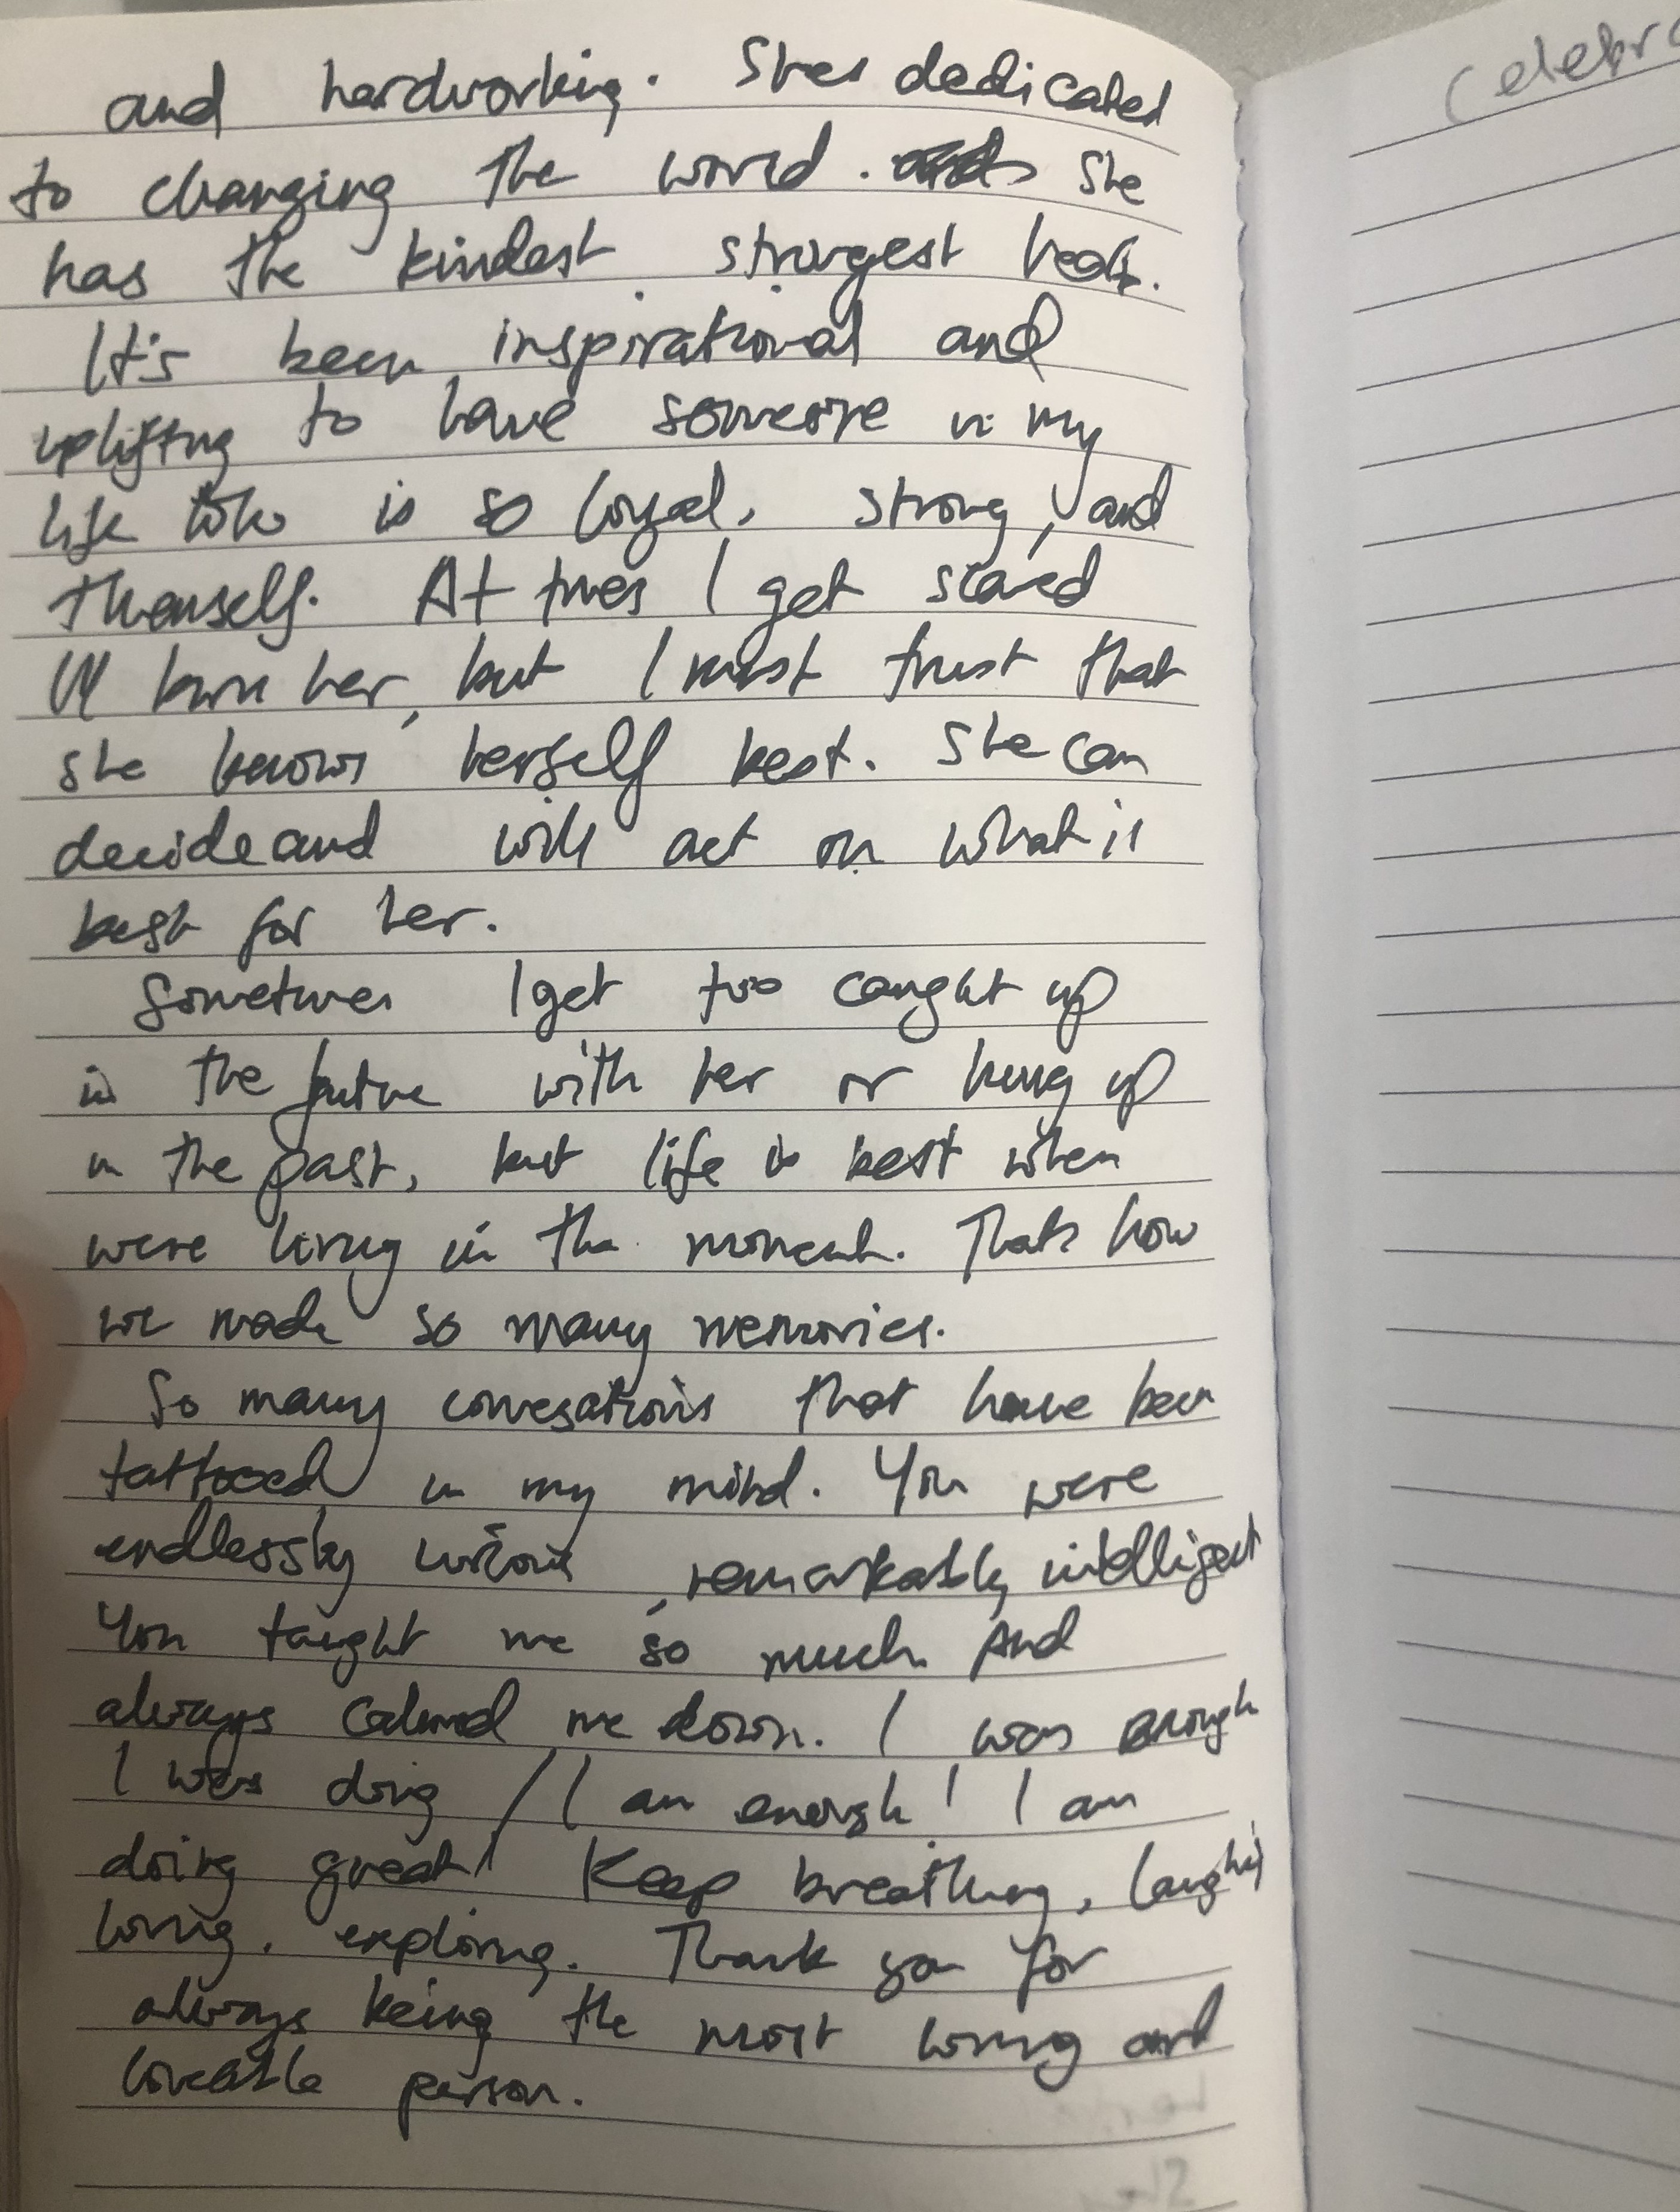 and hardworking. Shes dedicated
to changing the world. She
has the kindest strongest heart.
It's been inspirational and
uplifting to have someone in my
life who is so loyal, strong, and
themself. At times I get scared
I'll burn her, but I must trust that
she knows herself best. She can
decide and will act on what is
best for her.
Sometimes I get too caught up
in the future with her or hung up
in the past, but life is best when
were living in the moment. Thats how
we made so many memories.
So many convesations that have been
tattooed in my mind. You were
endlessly curious, remarkably intelligent
You taught me so much. And
always calmed me down. I was enough
I was doing / I am enough! I am
doing great! Keep breathing, laughing
loving, exploring. Thank you for
always being the most loving and
loveable person.
Celebra